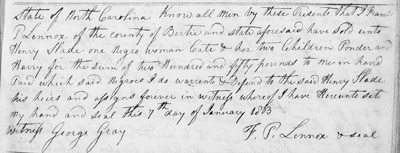 State of North Carolina Know all men by these Presents that I Francis
P. Lennox of the county of Bertie and state aforesaid have sold unto
Henry Slade one negro woman Cate & her two Children Ponder and
Harry for the sum of two Hundred and fifty pounds to me in hand
Paid which said Negroes I do warrent & Defend to the said Henry Slade
his heirs and assigns forever in witness whereof I have Hereunto set
my hand and seal this 7th day of January 1803
witness George Gray F. P. Lennox & seal